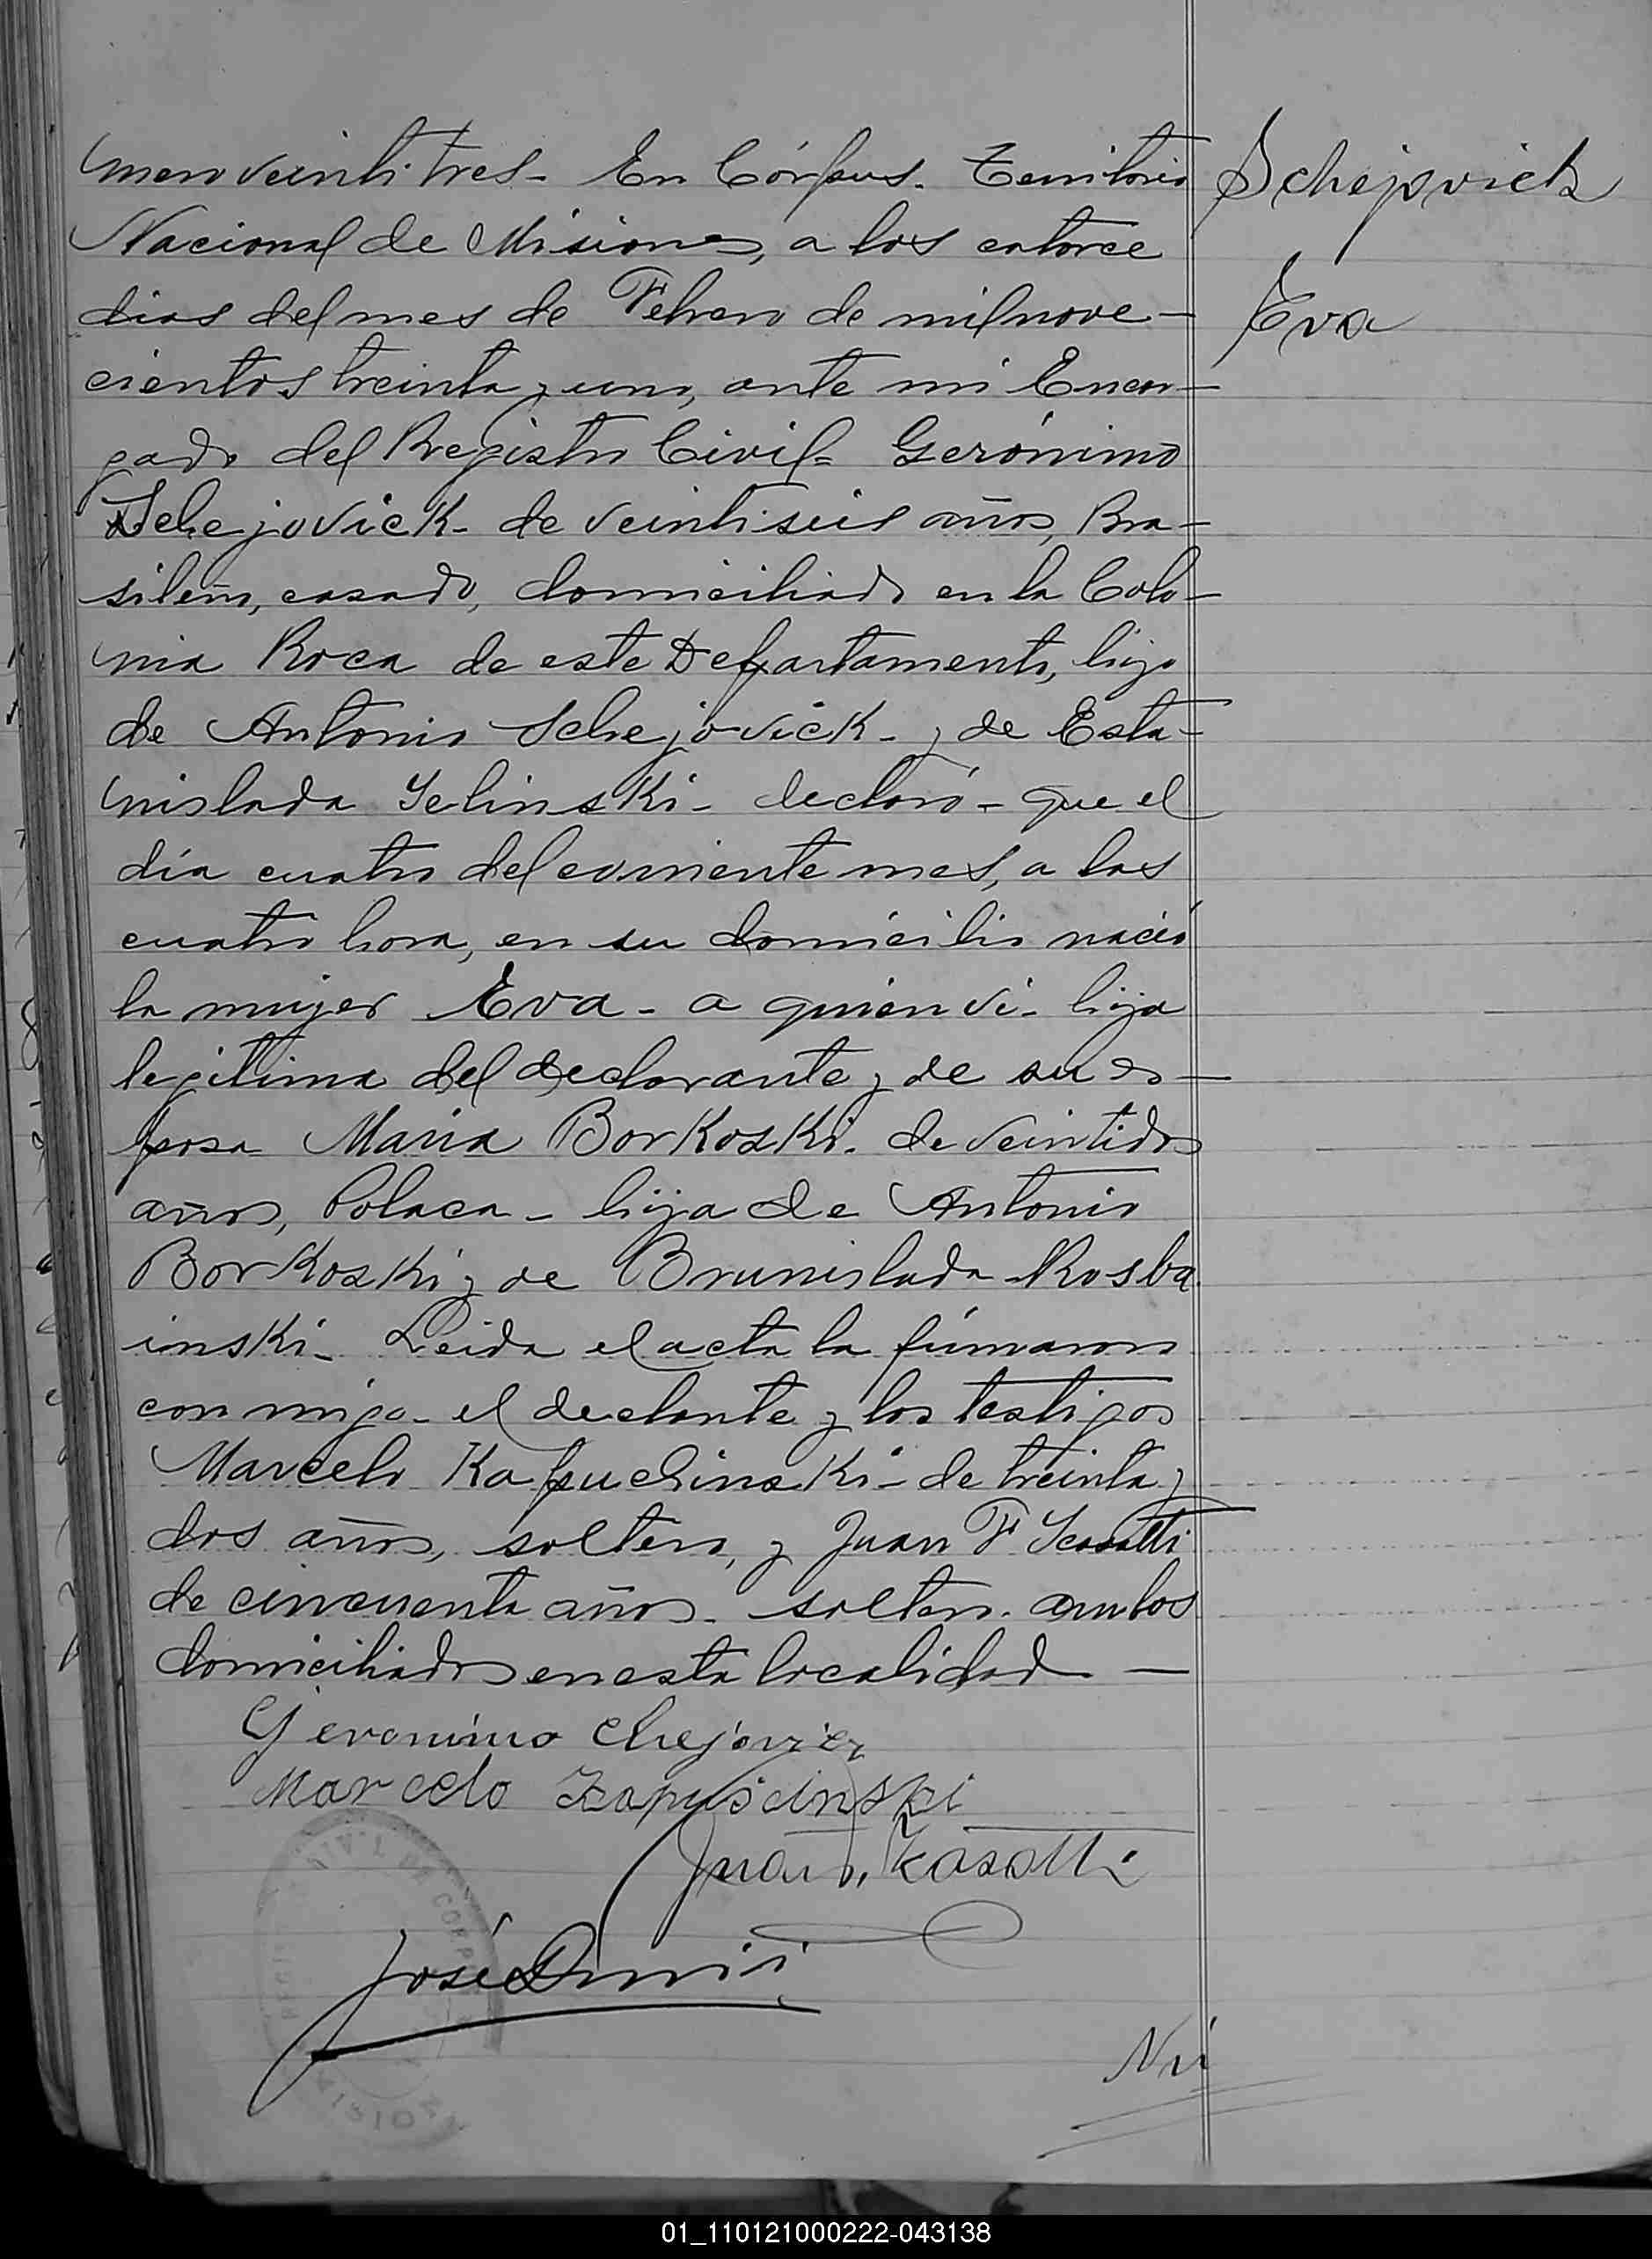 mero veintitres - En Córpus - Territorio
Nacional de Misiones, a los catorce
dias del mes de Febrero de mil nove-
cientos treinta y uno, ante mi Encar-
gado del Registro Civil = Gerónimo
Schejovick - de veintiseis años, Bra-
sileño, casado, domiciliado en la Colo-
nia Roca de este Departamento, hijo
de Antonio Schejovick - y de Esta-
nislada Yelinski - declaró - que el
día cuatro del corriente mes, a las
cuatro hora, en su domicilio nació
la mujer Eva - a quien vi - hija
legitima del declarante y de su es-
posa Maria Borkoski - de veintidos
años, Polaca - hija de Antonio
Borkoski y de Brunislada Rosba
inski - Leida el acta la firmaron
conmigo - el declante y los testigos
Marcelo Kapuchinski - de treinta y
dos años, soltero, y Juan F Scasatti
de cincuenta años - soltero - ambos
domiciliados en esta localidad —
Schejovick
Eva
Geronimo Chejovick
Marcelo Kapuscinski
Juan
José
Nú